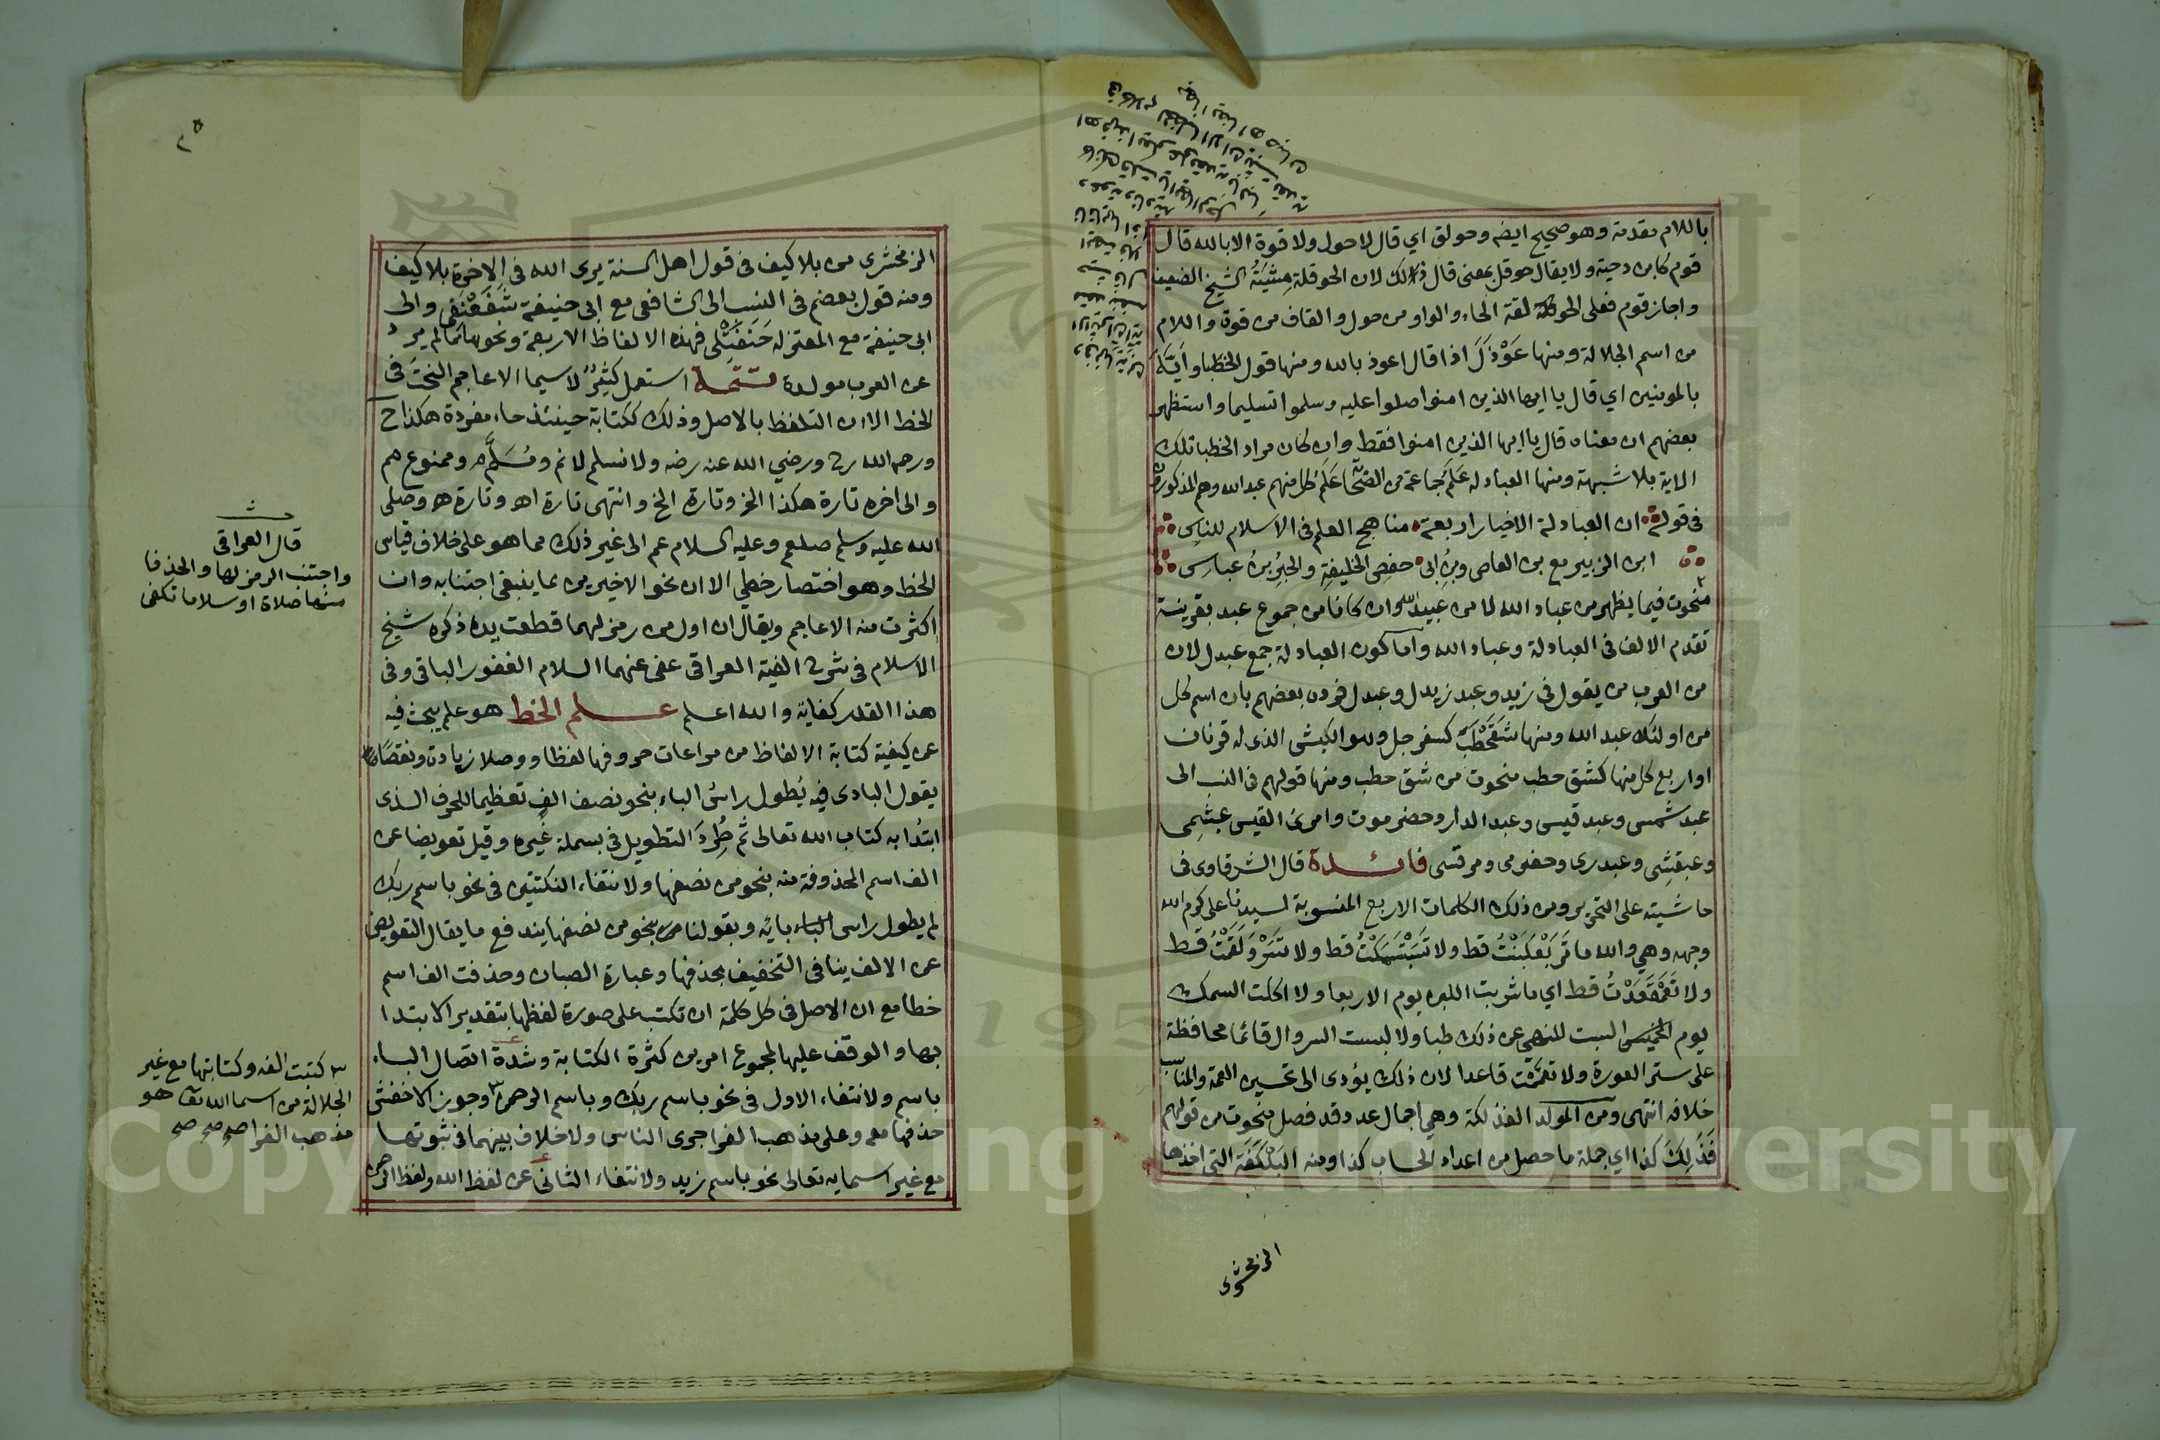 باللام مقدمة وهو صحيح ايضه وحولق اي قال لاحول ولا قوة الا بالله قال
قوم كابن دحية ولا يقال حوقل بمعنى قال ذلك لان الحوقلة مِشْيَتُه الشيخ الضعيف
واجاز قوم فعلى الحوقلة لفة الحاء والواو من حول والقاف من قوة واللام
من اسم الجلالة ومنها عَوْذَكَ اذا قال اعوذ بالله ومنها قول الخطبا
بالمومنين اي قال يا ايها الذين امنوا صلوا عليه وسلموا تسليما واستظهر
بعضهم ان معناه قال يا ايها الذين امنوا فقط وان كان مراد الخطبا تلك
الاية بلا شبهة ومنها العبادله عَلَم جماعة من الصحابة عَلَم كل منهم عبد الله وهم المذكورون
فى قوله ان العبادلة الاخيار اربعة مناهج العلم فى الاسلام للناس
ابن الزبير مع بن العاص وبن ابى حفص الخليفة والحبر بن عباس
منحوت فيما يظهر من عباد الله لا من عبيد الله وان كانا من جموع عبد بقرينة
تقدم الالف فى العبادلة وعباد الله واما كون العبادلة جمع عبدل لان
من العرب من يقول فى زيد وعبد زيدل وعبدل فردن بعضهم بان اسم كل
من اولئك عبد الله ومنها شَقَحْطَب كسفرجل وهو الكبش الذى له قرنان
او اربع كل منها كشق حطب منحوت من شق حطب ومنها قولهم فى النسب الى
عبد شمس وعبد قيس وعبد الدار وحضرموت وامرئ القيس عبشمى
وعبقسى وعبدرى وحضرمى ومرقسى فائدة قال الشرقاوى فى
حاشيته على التحرير ومن ذلك الكلمات الاربع المنسوبة لسيدنا على كرم الله
وجهه وهي والله ما تَرَبْعَلَبَنْتُ قط ولا تَسَبْتَسَمَكْتُ قط ولا تَسَرْوَلَقَمْتُ قط
ولا تَعَمْقَعَدْتُ قط اي ما شربت اللبن يوم الاربعا ولا اكلت السمك
يوم السبت للنهي عن ذلك طبا ولا لبست السروال قائما محافظة
على ستر العورة ولا تعممت قاعدا لان ذلك يؤدى الى العمة والمناسب
خلافه انتهى ومن المولد الفذلكة وهي اجمال عدد قد فصل منحوت من قولهم
فَذَلِكَ كذا اي جملة ما حصل من اعداد الحساب كذا ومنه البَلْكَفَة التي اخذها
الزمخشرى
الزمخشرى من بلا كيف فى قول اهل السنة يرى الله فى الاخرة بلا كيف
ومنه قول بعضهم فى النسب الى الشافعى مع ابى حنيفة شَفَعْنَفى والى
ابى حنيفة مع المعتزلة حَنَفْتَلى فهذه الالفاظ الاربعة ونحوها مما لم يرد
عن العرب مولدة تتمة استعمل كثير لا سيما الاعاجم النحت فى
الخط الا ان التلفظ بالاصل وذلك ككتابة حينئذ حاء مفردة هكذا ح
ورحمه الله رح ورضي الله عنه رضه ولا نسلم لا نم ومُسَلَّم وممنوع مم
والى اخره تارة هكذا الخ وتارة الخ وانتهى تارة اه وتارة هـ وصلى
الله عليه وسلم صلعم وعليه السلام عم الى غير ذلك مما هو على خلاف قياس
الخط وهو اختصار خطي الا ان نحو الاخيرين مما ينبغى اجتنابه وان
اكثرت منه الاعاجم ويقال ان اول من رمز لهما قطعت يده ذكره شيخ
الاسلام فى شرح الفية العراقى عفى عنهما السلام الغفور الباقى وفى
هذا القدر كفاية والله اعلم علم الخط هو علم يبحث فيه
عن كيفية كتابة الالفاظ من مراعات حروفها لفظا ووصلا زيادة ونقصانا
يقول البادى فيه يُطول راس الباء بنحو نصف الف تعظيما للحرف الذى
ابتدا به كتاب الله تعالى ثم طُرِدَ التطويل فى بسملة غيره وقيل تعويضا عن
الف اسم المحذوفة منه بنحو من نصفها ولانتفاء النكتتين فى نحو باسم ربك
لم يطول راس الباء بائه وبقولنا بنحو من نصفها يندفع ما يقال التعويض
عن الالف ينافى التخفيف بحذفها وعبارة الصبان وحذفت الف اسم
خطا مع ان الاصل فى كل كلمة ان تكتب على صورة لفظها بتقدير الابتدا
بها والوقف عليها لمجموع امرين كثرة الكتابة وشدة اتصال الباء
باسم ولانتفاء الاول فى نحو باسم ربك وباسم الرحمن وجوز الاخفش
حذفها معه وعلى مذهب الفرا جرى الناس ولا خلاف بينهما فى ثبوتها
مع غير اسمايه تعالى نحو باسم زيد ولانتفاء الثانى عن لفظ الله ولفظ الرحمن
قال العراقى
واجتنب الرمز لها والحذفا
منها صلاة او سلاما تكفى
كتبت الفه وكتابتها مع غير
الجلالة من اسما الله تعالى هو
مذهب الفرا صح صح صح